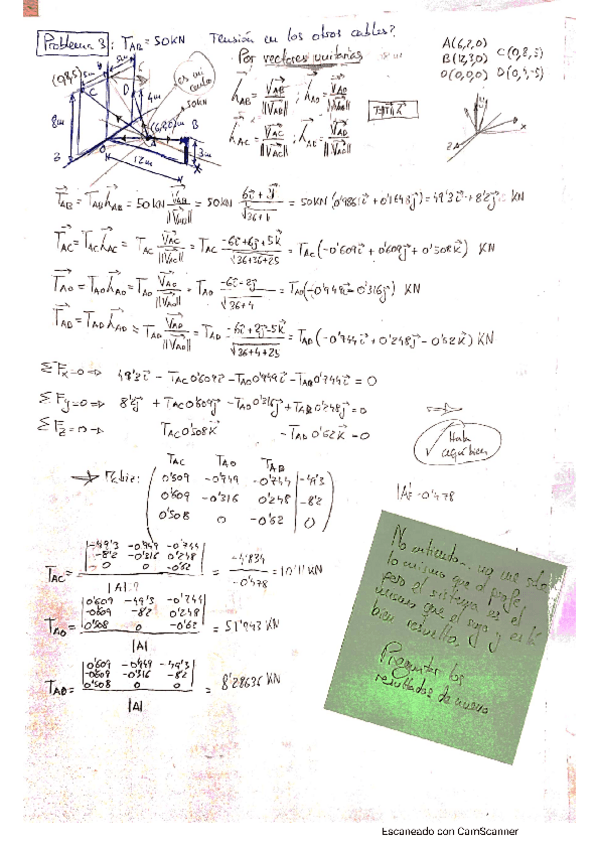 Problema 3: TAB = 50KN Tensión en los otros cables?
Por vectores unitarios
A(6,2,0)
B(12,3,0) C(0,8,5)
O(0,0,0) D(0,4,-5)
(0,8,5)
C
D
4m
8m
50KN
B
A
3m
O
12m
λAB = VAB/||VAB|| ; λAO = VAO/||VAO||
λAC = VAC/||VAC|| ; λAD = VAD/||VAD||
TAB = TAB λAB = 50KN VAB/||VAB|| = 50KN (6i + j)/√(36+1) = 50KN (0'986i + 0'164j) = 49'3i + 8'2j KN
TAC = TAC λAC = TAC VAC/||VAC|| = TAC (-6i+6j+5k)/√(36+36+25) = TAC(-0'609i + 0'609j + 0'508k) KN
TAO = TAO λAO = TAO VAO/||VAO|| = TAO (-6i-2j)/√(36+4) = TAO(-0'949i - 0'316j) KN
TAD = TAD λAD = TAD VAD/||VAD|| = TAD (-6i+2j-5k)/√(36+4+25) = TAD(-0'744i + 0'248j - 0'62k) KN
ΣFx=0 ⇒ 49'3i - TAC 0'609i - TAO 0'949i - TAD 0'744i = 0
ΣFy=0 ⇒ 8'2j + TAC 0'609j - TAO 0'316j + TAD 0'248j = 0
ΣFz=0 ⇒ TAC 0'508k - TAD 0'62k = 0
Hasta aquí bien
TAC TAO TAD
-0'949 -0'744 -49'3
0'609 -0'316 0'248 -8'2
0'508 0 -0'62 0
|A| = -0'478
-49'3 -0'949 -0'744
-8'2 -0'316 0'248
0 0 -0'62
TAC = /|A| = -4'834/-0'478 = 10'11 KN
0'609 -49'3 -0'744
-0'609 -8'2 0'248
0'508 0 -0'62
TAO = /|A| = 51'943 KN
0'609 -0'949 -49'3
-0'609 -0'316 -8'2
0'508 0 0
TAD = /|A| = 8'28636 KN
No entiendo... no me sale
lo mismo que al profe
pero el sistema es el
mismo que el suyo y está
bien resuelto.
Preguntar los
resultados de nuevo
Escaneado con CamScanner